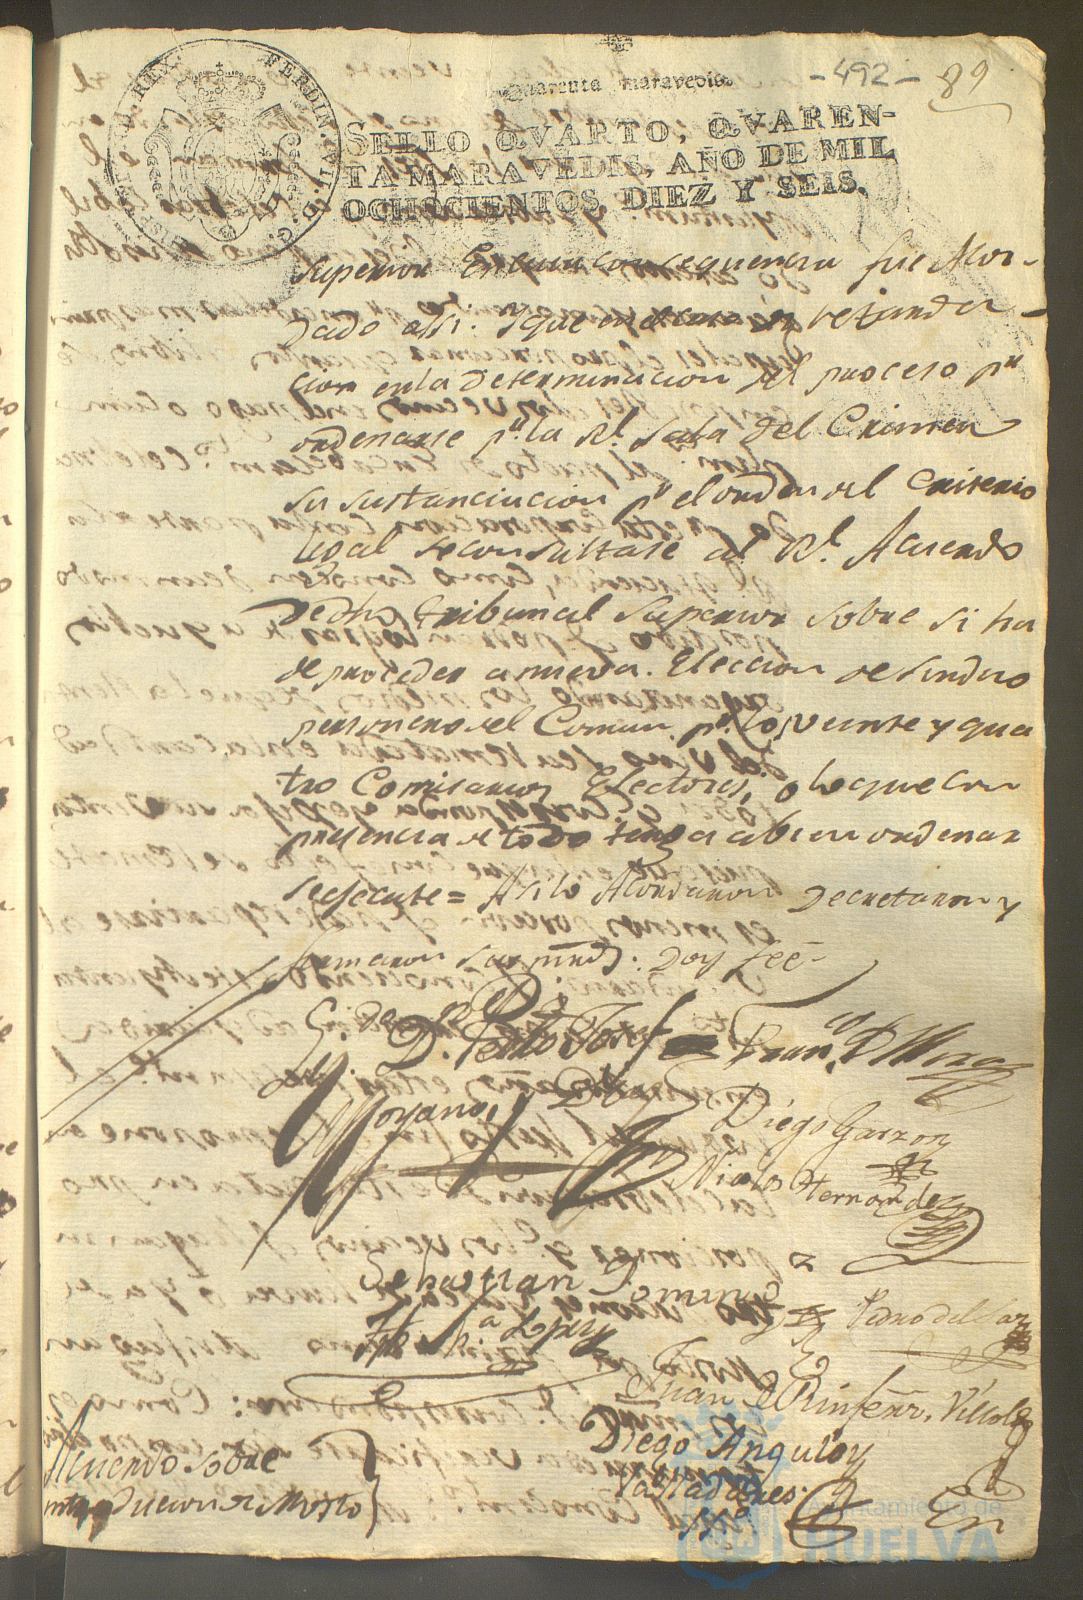 - 492 -
89
Quarenta maravedis.
HISPANIAR. REX. FERDIN. VII. D. G.
SELLO QVARTO, QVAREN-
TA MARAVEDIS, AÑO DE MIL
OCHOCIENTOS DIEZ Y SEIS.
superior En cuia consequencia fue Acor-
dado assi: Yque en el caso de retarda
cion enla determinacion del proceso pr
ordenarse pr. la Rl. Sala del Crimen
su sustanciacion pr el orden del Criterio
legal se consultase al Rl. Acuerdo
de dho Tribunal Superior sobre si ha
de proceder a nueva Eleccion de sindico
personero del Comun pr. los veinte y qua
tro Comisarios Electores, o lo que con
presencia de todo tenga abien ordenar
se ejecute = Asi lo Acordaron Decretaron y
firmaron sus mrds. Doy fee=
Dn. Pedro Josef
Moyano, y Diaz
Diego Garzon
Nicolas Hernandez
Sebastian Domingo
Lopez
Pedro del
Juan
Diego Anguloy
Valladares
SSno.
Acuerdo sobre
introduccion de Mosto
En
Ayuntamiento de
HUELVA